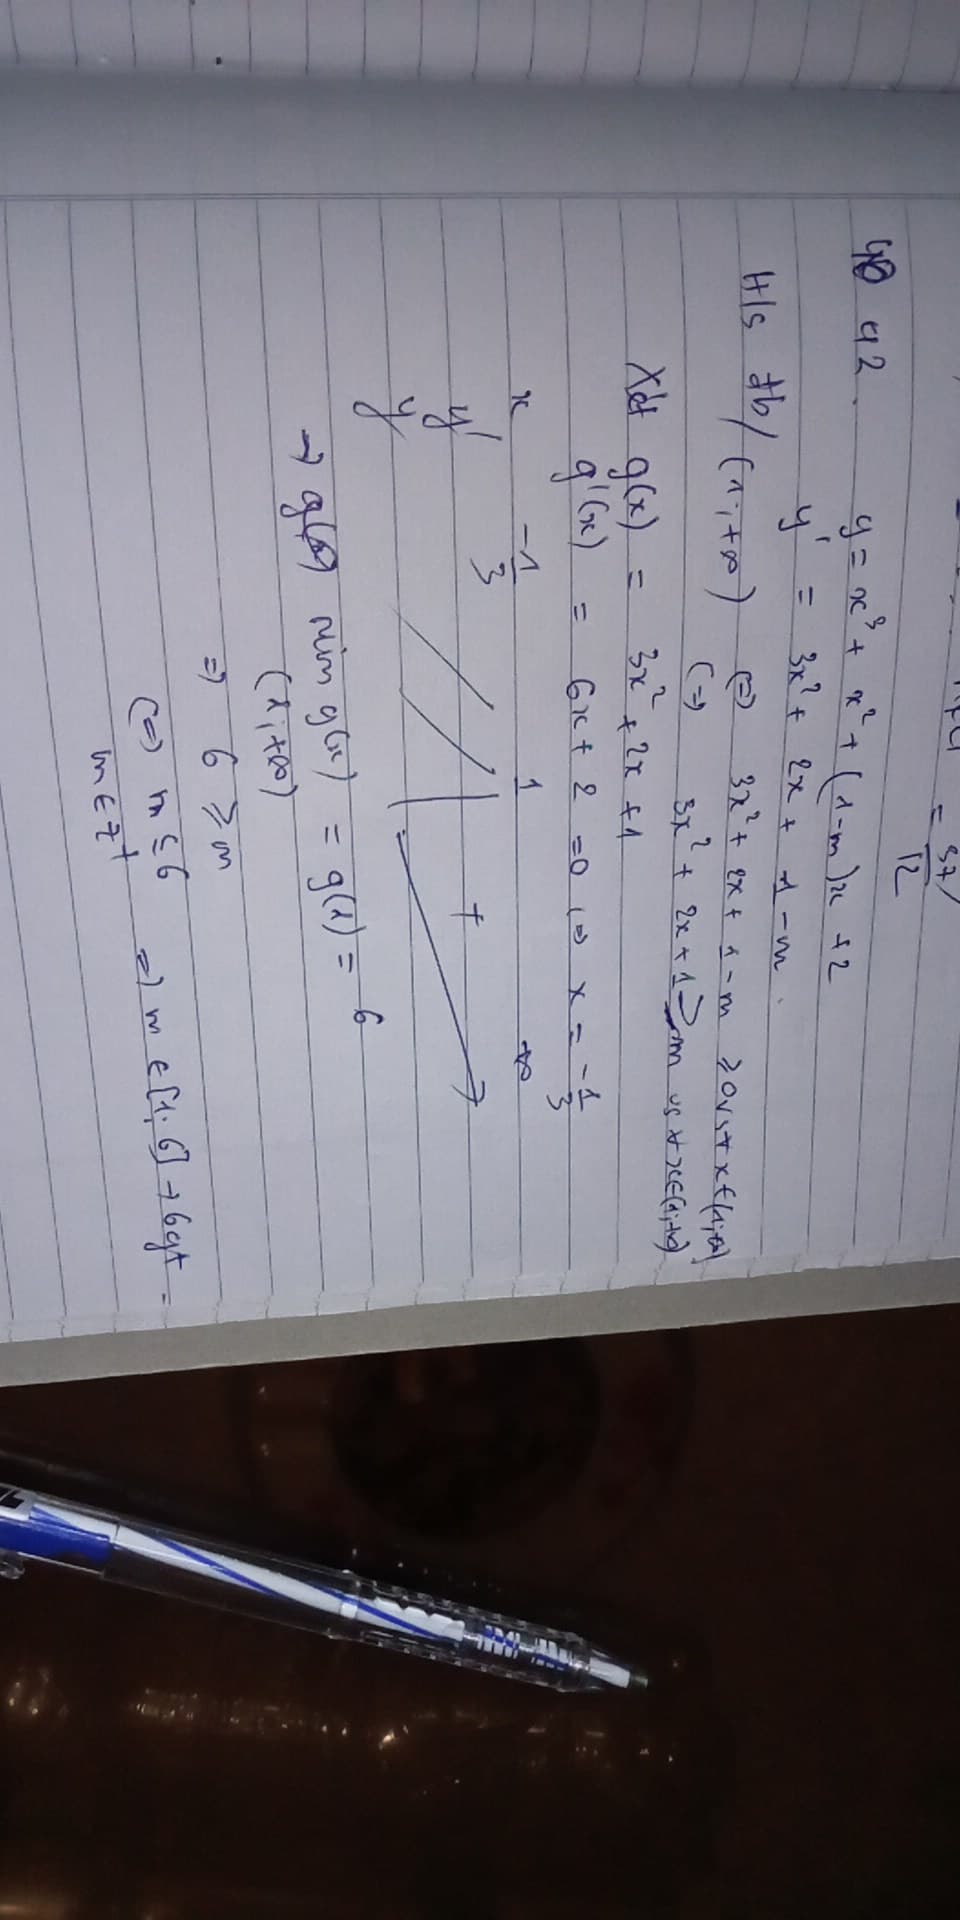 = 37/
12
42. y = x³ + x² + (1-m)x + 2
y' = 3x² + 2x + 1-m.
H/s đb/(1;+∞) (=) 3x² + 2x + 1-m ≥ 0 vs ∀ x ∈ (1;+∞)
(=) 3x² + 2x + 1 ≥ m vs ∀ x ∈ (1;+∞)
Xét g(x) = 3x² + 2x + 1
g'(x) = 6x + 2 = 0 (=) x = -1/3
x -1/3 1 +∞
y' +
y
→ min g(x) = g(1) = 6
(1;+∞)
=) 6 ≥ m
(=) m ≤ 6 =) m ∈ [1; 6] → 6gt.
m ∈ Z⁺